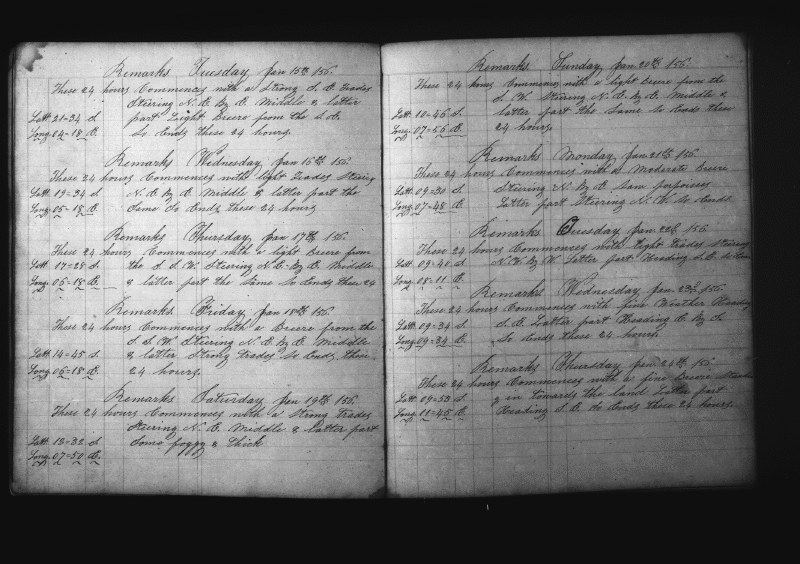 Remarks Tuesday Jan 15th 156.
These 24 hours Commences with a Strong S. E. Trades
Steering N. E. By E. Middle & latter
Latt. 21=34 S part Light breeze from the S. E.
Long. 04=18 E. So Ends these 24 hours.
Remarks Wednesday Jan 16th 156.
These 24 hours Commences with light Trades Steering
Latt. 19=34 S N. E. By E. Middle & latter part the
Long. 05=18 E. Same So Ends these 24 hours
Remarks Thursday Jan 17th 156.
These 24 hours Commences with a light breeze from
Latt. 17=28 S. the S. S. W. Steering N. E. By E. Middle
Long. 05=18 E. & latter part the Same So Ends these 24
Remarks Friday Jan 18th 156.
These 24 hours Commences with a Breeze from the
S. S. W. Steering N. E. By E. Middle
Latt. 14=45 S. & latter Strong Trades So Ends these
Long. 06=18 E. 24 hours.
Remarks Saturday Jan 19th 156.
These 24 hours Commences with a Strong Trades
Steering N. E. Middle & latter part
Latt. 12=32 S Some foggy & Thick
Long. 07=50 E.
Remarks Sunday Jan 20th 156.
These 24 hours Commences with a light breeze from the
S. W. Steering N. E. By E. Middle &
Latt. 10=46 S latter part the Same So Ends these
Long. 07=56 E. 24 hours
Remarks Monday Jan 21st 156.
These 24 hours Commences with a Moderate breeze
Latt. 09=30 S Steering N. By E. Saw porpoises
Long. 07=48 E. Latter part Steering N. W. So Ends
Remarks Tuesday Jan 22d 156.
These 24 hours Commences with light Trades Steering
Latt. 09=40 S. N. W. By W. Latter part Heading S. E.
Long. 08=11 E.
Remarks Wednesday Jan 23d 156.
These 24 hours Commences with fine Weather Heading
Latt. 09=34 S. S. E. Latter part Heading E. By S.
Long. 09=34 E. So Ends these 24 hours.
Remarks Thursday Jan 24th 156.
These 24 hours Commences with a fine breeze
Latt. 09=53 S & in towards the land Latter part
Long. 11=45 E. Heading S. E. So Ends these 24 hours.